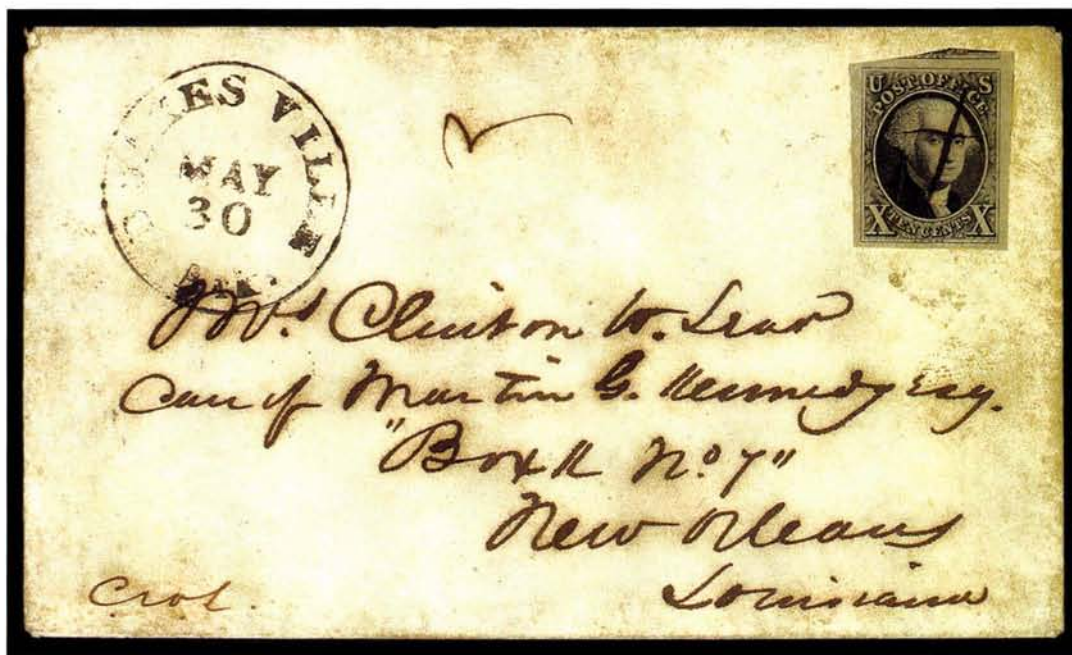 VILLE
MAY
30
U S
POST OFFICE
X TEN CENTS X
Mrs Clinton W. Lear
Care of Martin G. Kennedy Esq.
"Box K No 7"
New Orleans
Louisiana